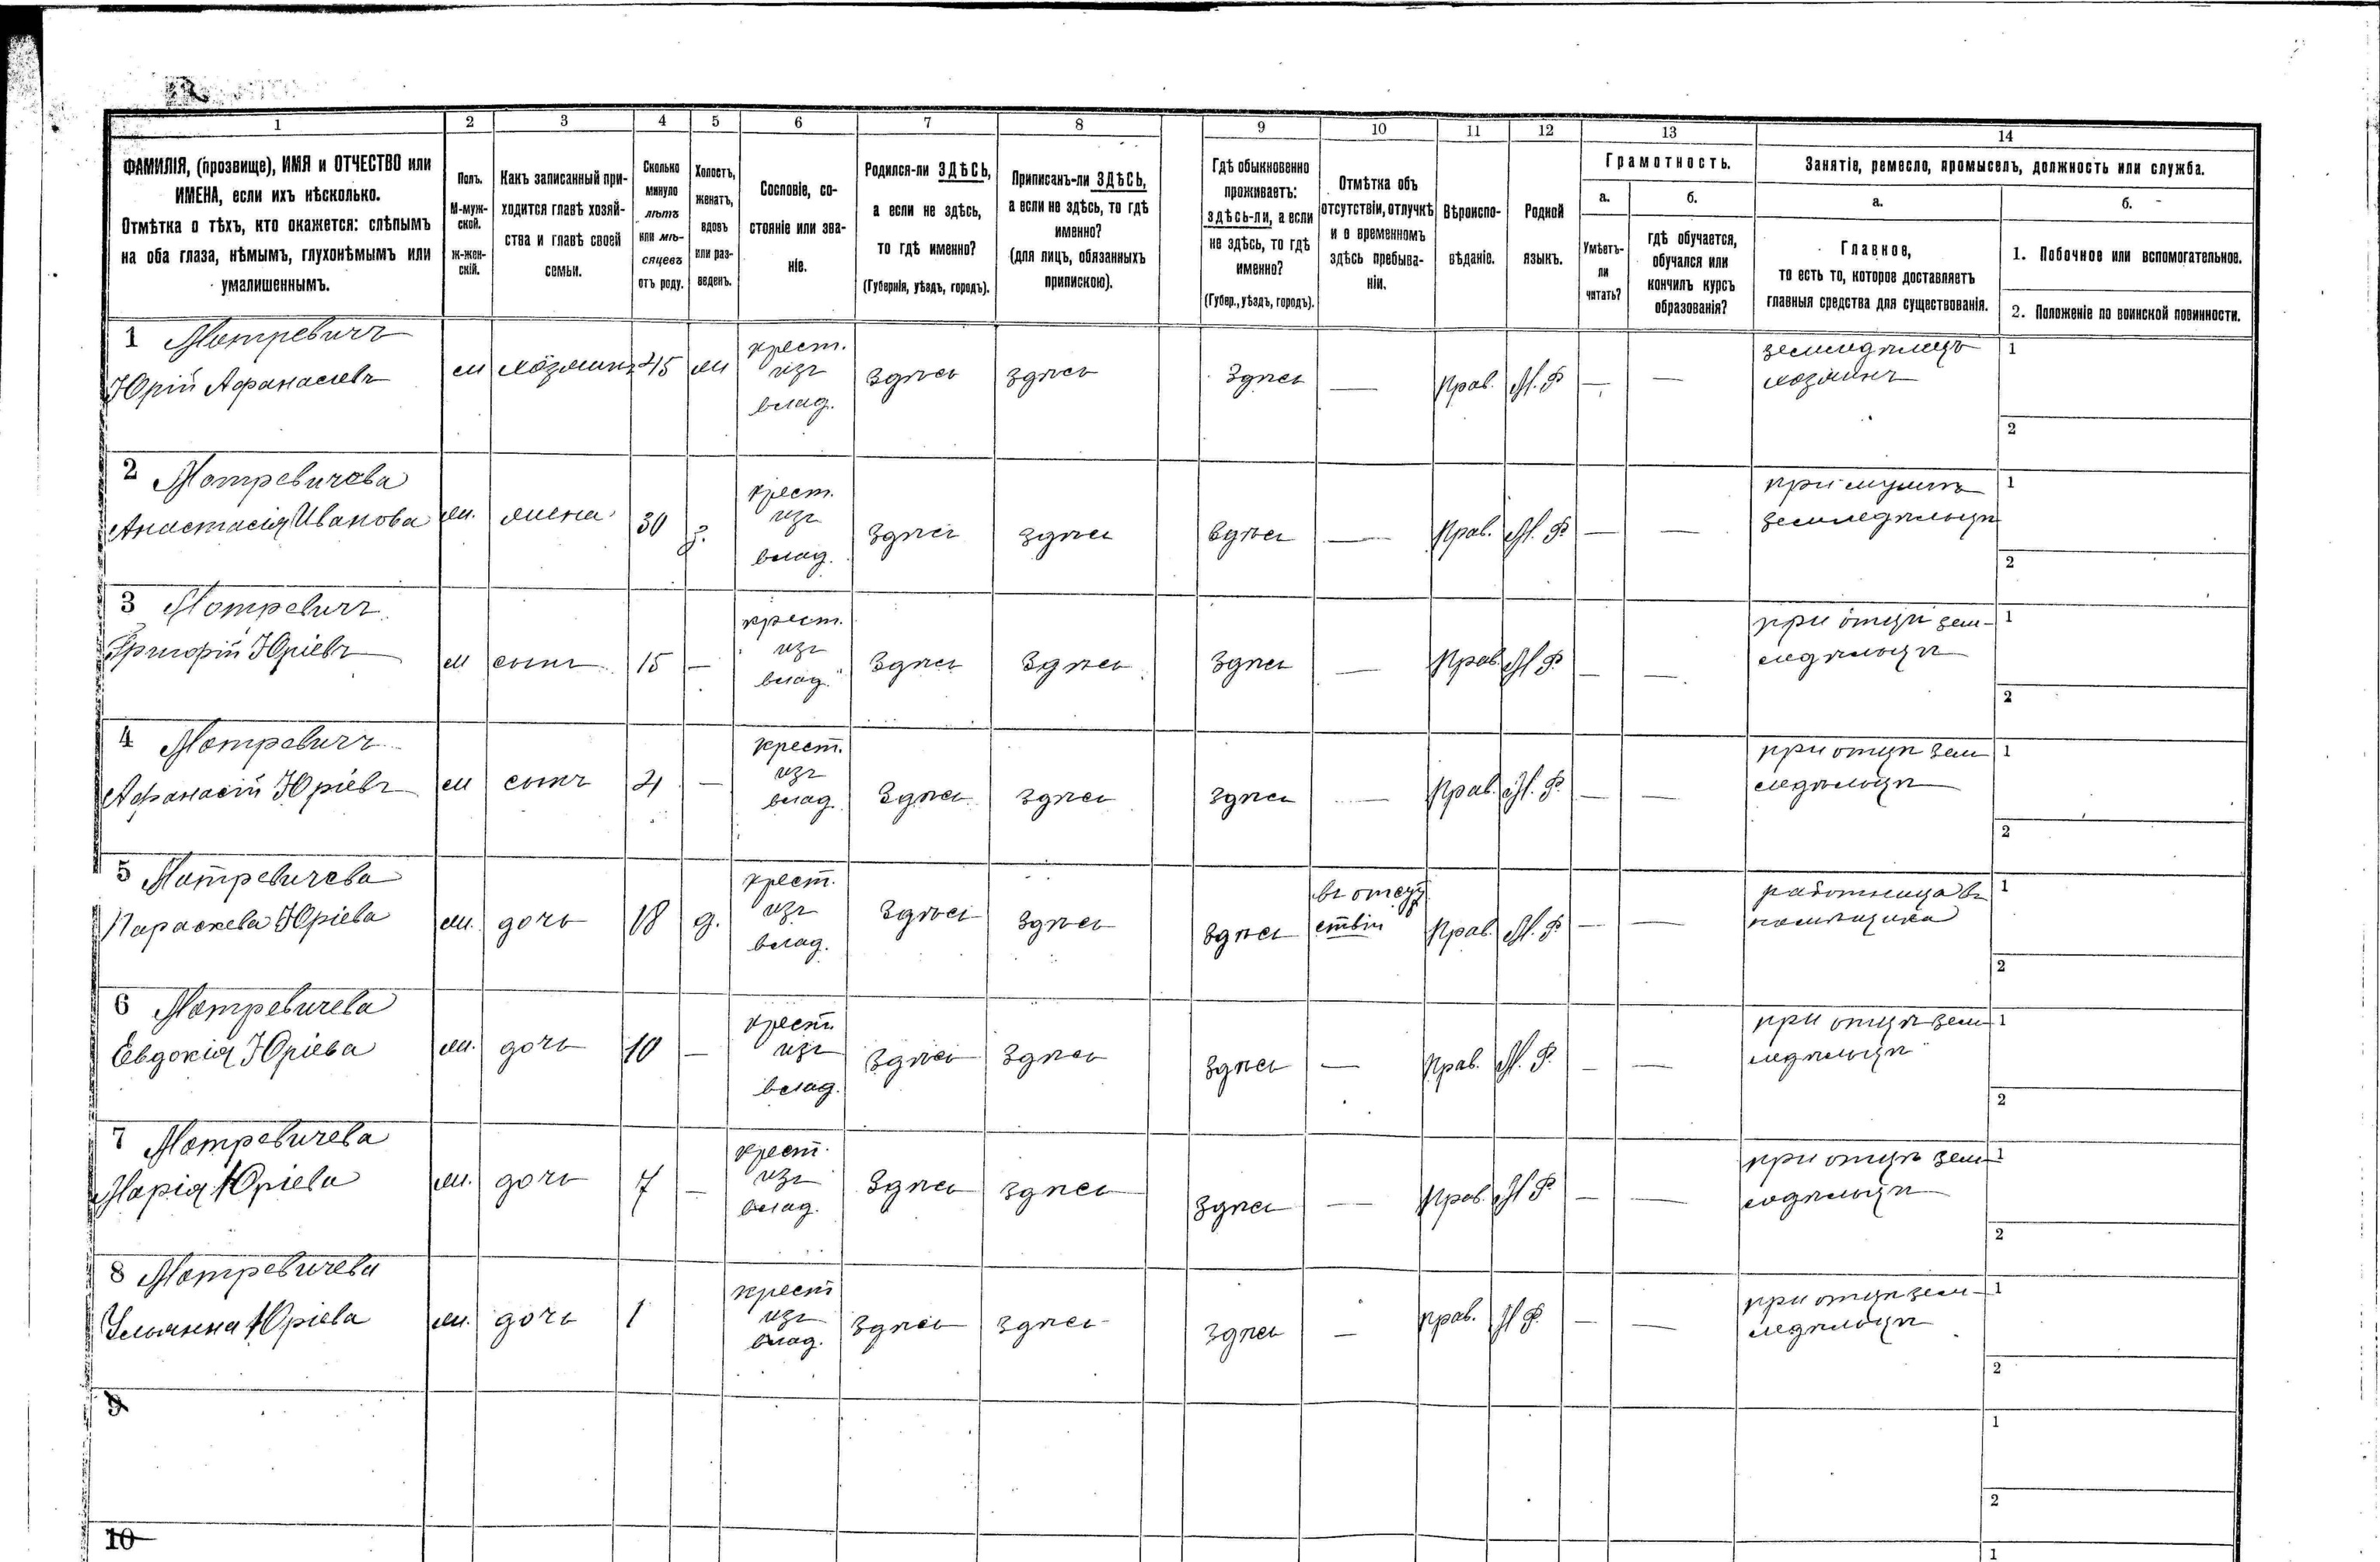 1 2 3 4 5 6 7 8 9 10 11 12 13 14
ФАМИЛІЯ, (прозвище), ИМЯ и ОТЧЕСТВО или
ИМЕНА, если ихъ нѣсколько.
Отмѣтка о тѣхъ, кто окажется: слѣпымъ
на оба глаза, нѣмымъ, глухонѣмымъ или
умалишеннымъ.
Полъ.
М-муж-
ской.
ж-жен-
скій.
Какъ записанный при-
ходится главѣ хозяй-
ства и главѣ своей
семьи.
Сколько
минуло
лѣтъ
или мѣ-
сяцевъ
отъ роду.
Холостъ,
женатъ,
вдовъ
или раз-
веденъ.
Сословіе, со-
стояніе или зва-
ніе.
Родился-ли ЗДѢСЬ,
а если не здѣсь,
то гдѣ именно?
(Губернія, уѣздъ, городъ).
Приписанъ-ли ЗДѢСЬ,
а если не здѣсь, то гдѣ
именно?
(для лицъ, обязанныхъ
припискою).
Гдѣ обыкновенно
проживаетъ:
здѣсь-ли, а если
не здѣсь, то гдѣ
именно?
(Губер., уѣздъ, городъ).
Отмѣтка объ
отсутствіи, отлучкѣ
и о временномъ
здѣсь пребыва-
ніи.
Вѣроиспо-
вѣданіе.
Родной
языкъ.
Грамотность.
а.
Умѣетъ-
ли
читать?
б.
гдѣ обучается,
обучался или
кончилъ курсъ
образованія?
Занятіе, ремесло, промыселъ, должность или служба.
а.
Главное,
то есть то, которое доставляетъ
главныя средства для существованія.
б.
1. Побочное или вспомогательное.
2. Положеніе по воинской повинности.
1 Мотревичъ
Юрій Афанасіевъ
м
хозяинъ
45
ж
крест.
изъ
влад.
здѣсь
здѣсь
Здѣсь
—
Прав.
М. Ф
—
—
земледѣлецъ
хозяинъ
1
2
2 Мотревичева
Анастасія Иванова
ж.
жена
30
з.
крест.
изъ
влад.
здѣсь
здѣсь
здѣсь
—
Прав.
М. Ф
—
—
при мужѣ
земледѣльцѣ
1
2
3 Мотревичъ
Григорій Юріевъ
м
сынъ
15
—
крест.
изъ
влад.
здѣсь
здѣсь
здѣсь
—
Прав.
М. Ф.
—
—
при отцѣ зем-
ледѣльцѣ
1
2
4 Мотревичъ
Афанасій Юріевъ
м
сынъ
—
крест.
изъ
влад.
здѣсь
здѣсь
здѣсь
—
Прав.
М. Ф.
—
—
при отцѣ зем
ледѣльцѣ
1
2
5 Мотревичева
Параскева Юріева
ж.
дочь
18
д.
крест.
изъ
влад.
здѣсь
здѣсь
здѣсь
въ отсут
ствіи
Прав.
М. Ф.
—
—
работница въ
помѣщика
1
2
6 Мотревичева
Евдокія Юріева
ж.
дочь
10
—
крест.
изъ
влад.
здѣсь
здѣсь
здѣсь
—
Прав.
М. Ф.
—
—
при отцѣ зем
ледѣльцѣ
1
2
7 Мотревичева
Марія Юріева
ж.
дочь
7
—
крест.
изъ
влад.
здѣсь
здѣсь
здѣсь
—
Прав.
М. Ф.
—
—
при отцѣ зем
ледѣльцѣ
1
2
8 Мотревичева
Ульянна Юріева
ж.
дочь
1
крест
изъ
влад.
здѣсь
здѣсь
здѣсь
—
прав.
М Ф.
—
—
при отцѣ зем-
ледѣльцѣ
1
2
9
1
2
10
1